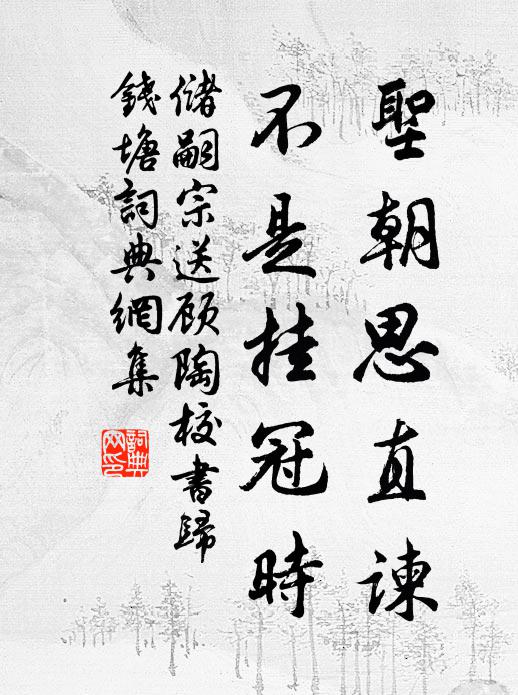 聖朝思直諫
不是挂冠時
儲嗣宗送顾陶校書歸
錢塘詞典網集
詞典
网印